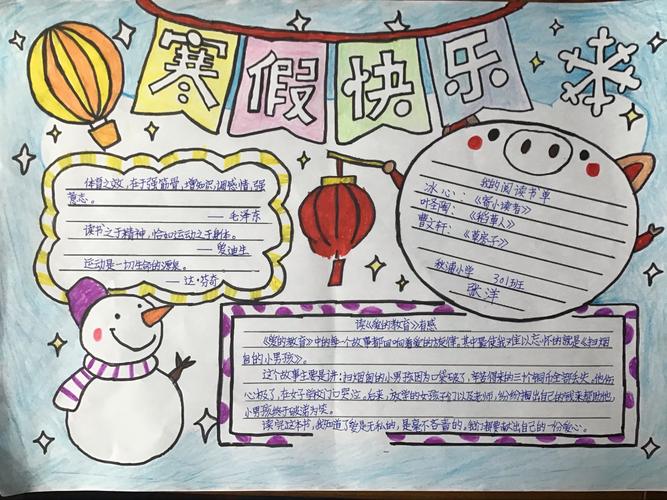 寒假快乐
体育之效,在于强筋骨,增知识,调感情,强
意志。
——毛泽东
读书之于精神,恰如运动之于身体。
——爱迪生
运动是一切生命的源泉。
——达·芬奇
我的阅读书单
冰心:《寄小读者》
叶圣陶:《稻草人》
曹文轩:《草房子》
秋浦小学 301班
张洋
读《爱的教育》有感
《爱的教育》中的每个故事都回响着爱的旋律,其中最使我难以忘怀的就是《扫烟
囱的小男孩》。
这个故事主要是讲:扫烟囱的小男孩因为口袋破了,辛苦得来的三十个铜币全部丢失。他伤
心极了,在女子学校门口哭泣。后来,放学的女孩子们以及老师,纷纷捐出自己的钱来帮助他,
小男孩终于破涕为笑。
读完这本书,我知道了爱是无私的,是毫不吝啬的。我们都要献出自己的一份爱心。